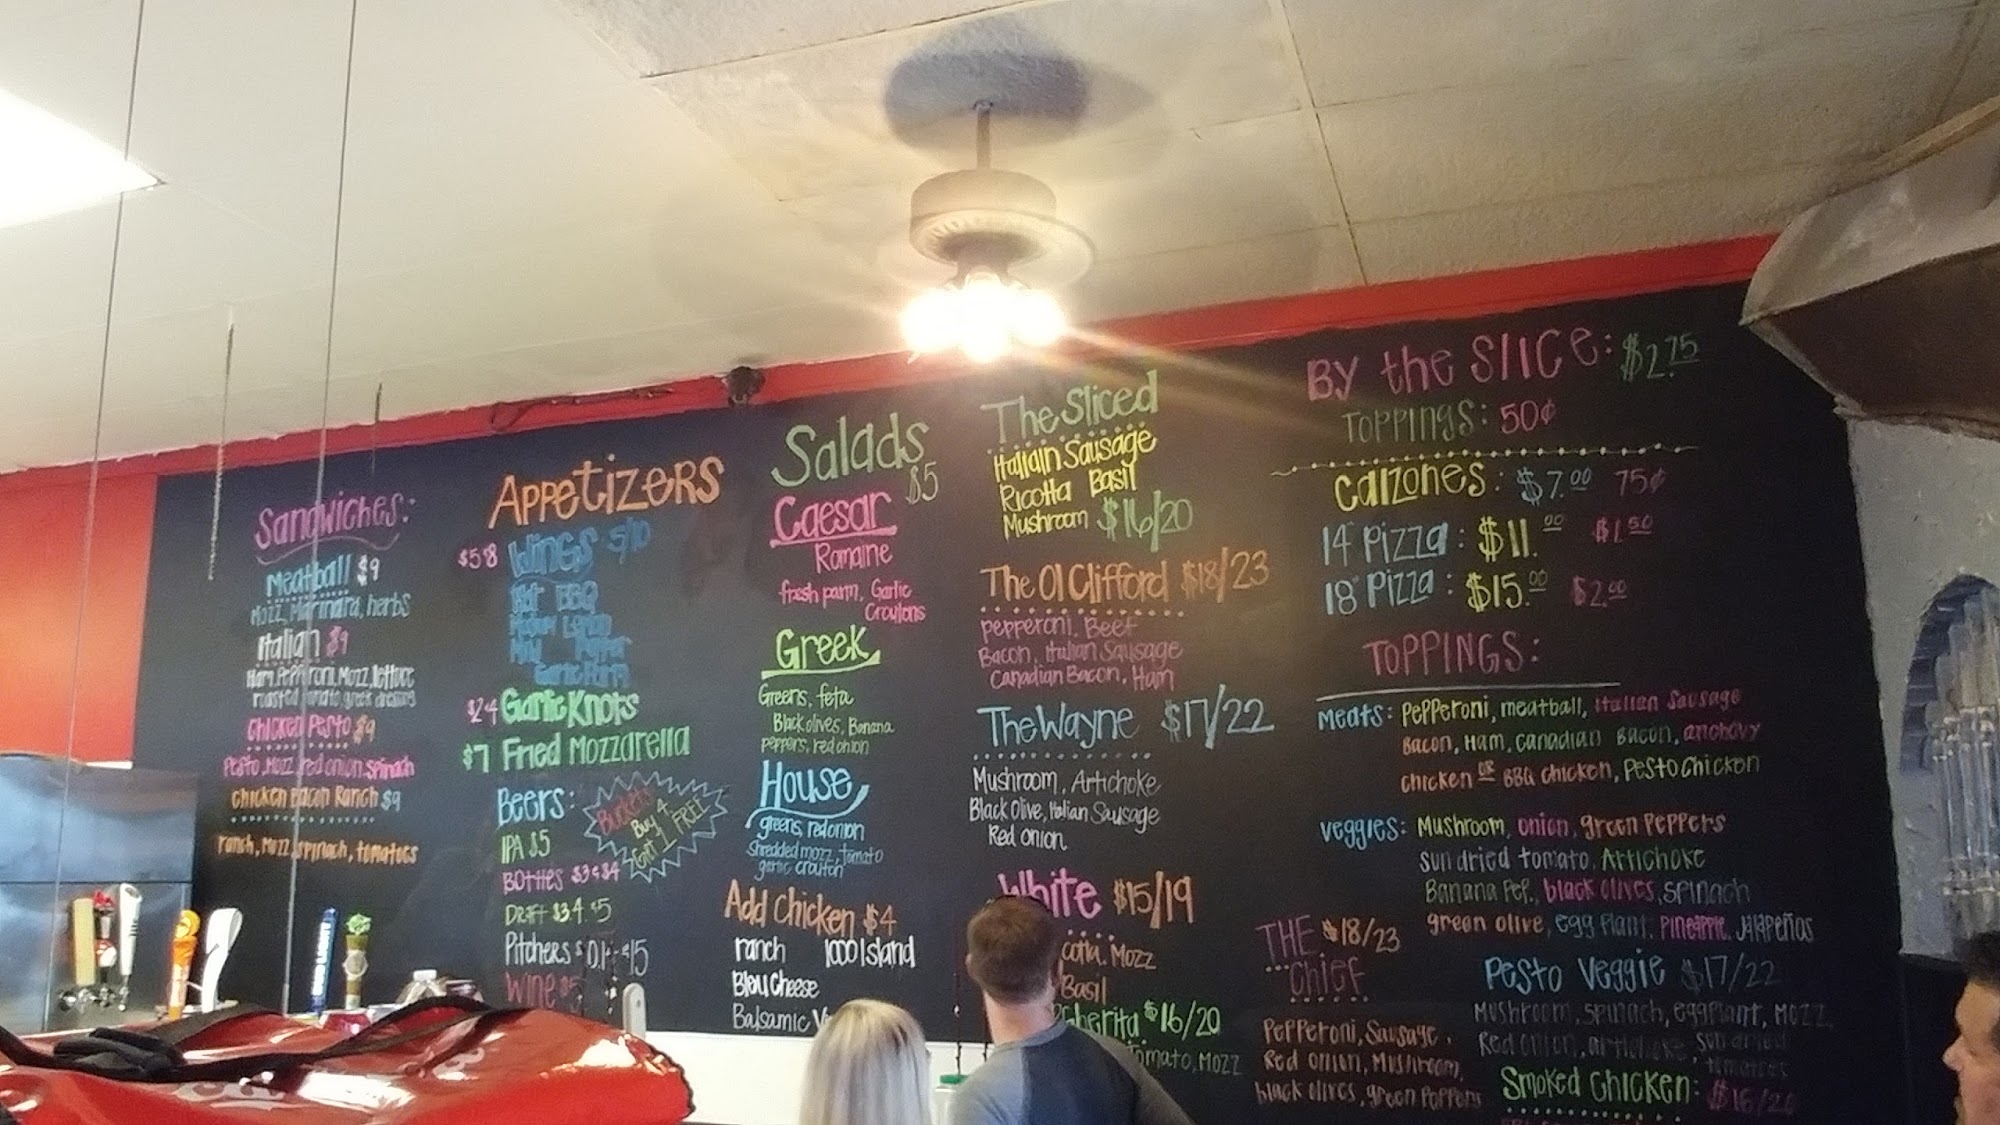 Sandwiches:
Meatball $9
Mozz, Marinara, herbs
Italian $9
Ham, Pepperoni, Mozz, lettuce
roasted tomato, greek dressing
Chicken Pesto $9
Pesto, Mozz, red onion, spinach
Chicken Bacon Ranch $9
ranch, Mozz, spinach, tomatoes
Appetizers
$5 8 Wings 5/10
Hot BBQ
Garlic Parm
$2 4 Garlic Knots
$7 Fried Mozzarella
Beers:
IPA $5
Bottles $3 & $4
Draft $3.4.$5
Pitchers
Wine $5
Buckets
Buy 4
Get 1 FREE
Salads
$5
Caesar
Romaine
fresh parm, Garlic
Croutons
Greek
Greens, feta
Black olives, Banana
peppers, red onion
House
greens, red onion
shredded mozz, tomato
garlic crouton
Add Chicken $4
ranch 1000 Island
Bleu Cheese
Balsamic V
The Sliced
Itallain Sausage
Ricotta Basil
Mushroom $16/20
The Ol Clifford $18/23
Pepperoni, Beef
Bacon, Italian Sausage
Canadian Bacon, Ham
The Wayne $17/22
Mushroom, Artichoke
Black Olive, Italian Sausage
Red onion
White $15/19
cotta, Mozz
Basil
gherita $16/20
Tomato, Mozz
By the Slice: $2.75
Toppings: 50¢
Calzones: $7.00 75¢
14" Pizza: $11.00 $1.50
18" Pizza: $15.00 $2.00
Toppings:
Meats: Pepperoni, meatball, Italian Sausage
Bacon, Ham, Canadian Bacon, anchovy
chicken or BBQ chicken, Pesto Chicken
Veggies: Mushroom, onion, green peppers
sun dried tomato, Artichoke
Banana Pep, black olives, spinach
green olive, egg plant, pineapple, Jalapeños
The Chief $18/23
Pepperoni, Sausage,
Red Onion, Mushroom,
black olives, green Peppers
Pesto Veggie $17/22
Mushroom, Spinach, eggplant, Mozz
Red onion, artichoke, sun dried
tomatoes
Smoked Chicken: $16/20